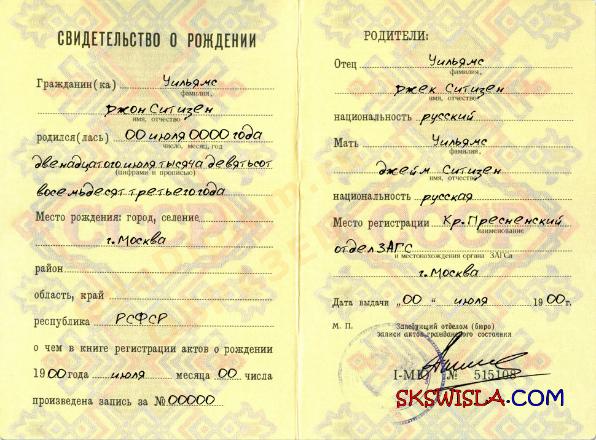 СВИДЕТЕЛЬСТВО О РОЖДЕНИИ
Гражданин(ка) Уильямс
фамилия,
джон Ситизен
имя, отчество
родился(лась) 00 июля 0000 года
число, месяц, год
двенадцатого июля тысяча девятьсот
(цифрами и прописью)
восемьдесят третьего года
Место рождения: город, селение
г. Москва
район
область, край
республика РСФСР
о чем в книге регистрации актов о рождении
1900 года июля месяца 00 числа
произведена запись за № 00000
РОДИТЕЛИ:
Отец Уильямс
фамилия,
джек Ситизен
имя, отчество
национальность русский
Мать Уильямс
фамилия,
джейм Ситизен
имя, отчество
национальность русская
Место регистрации Кр. Пресненский
наименование
отдел ЗАГС
и местонахождения органа ЗАГСа
г. Москва
Дата выдачи „00" июля 1900 г.
М. П. Заведующий отделом (бюро)
записи актов гражданского состояния
№ 515108
SKSWISLA.COM